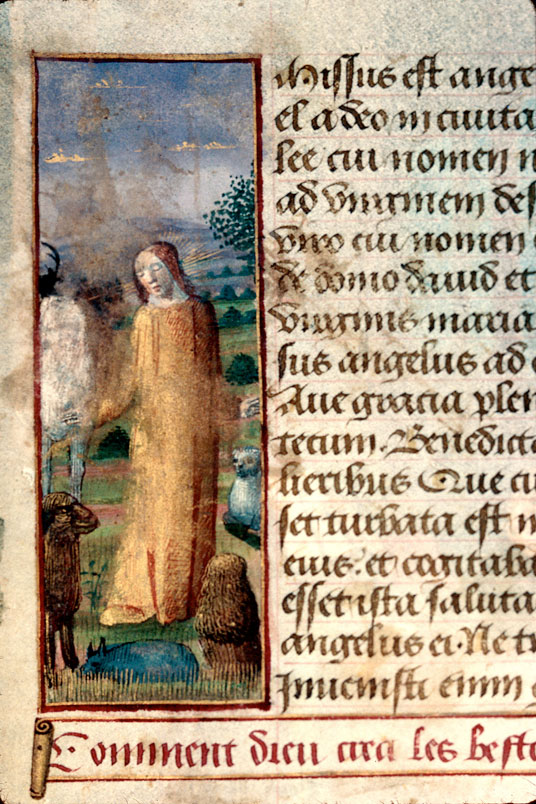 Missus est ange
el a deo in ciuita
lee cui nomen n
ad virginem des
viro cui nomen
de domo dauid et
virginis maria
sus angelus ad e
Aue gracia plen
tecum. Benedicta
lieribus Que cu
set turbata est in
eius. et cogitaba
esset ista saluta
angelus ei. Ne ti
Inuenisti enim g
Comment dieu crea les besto